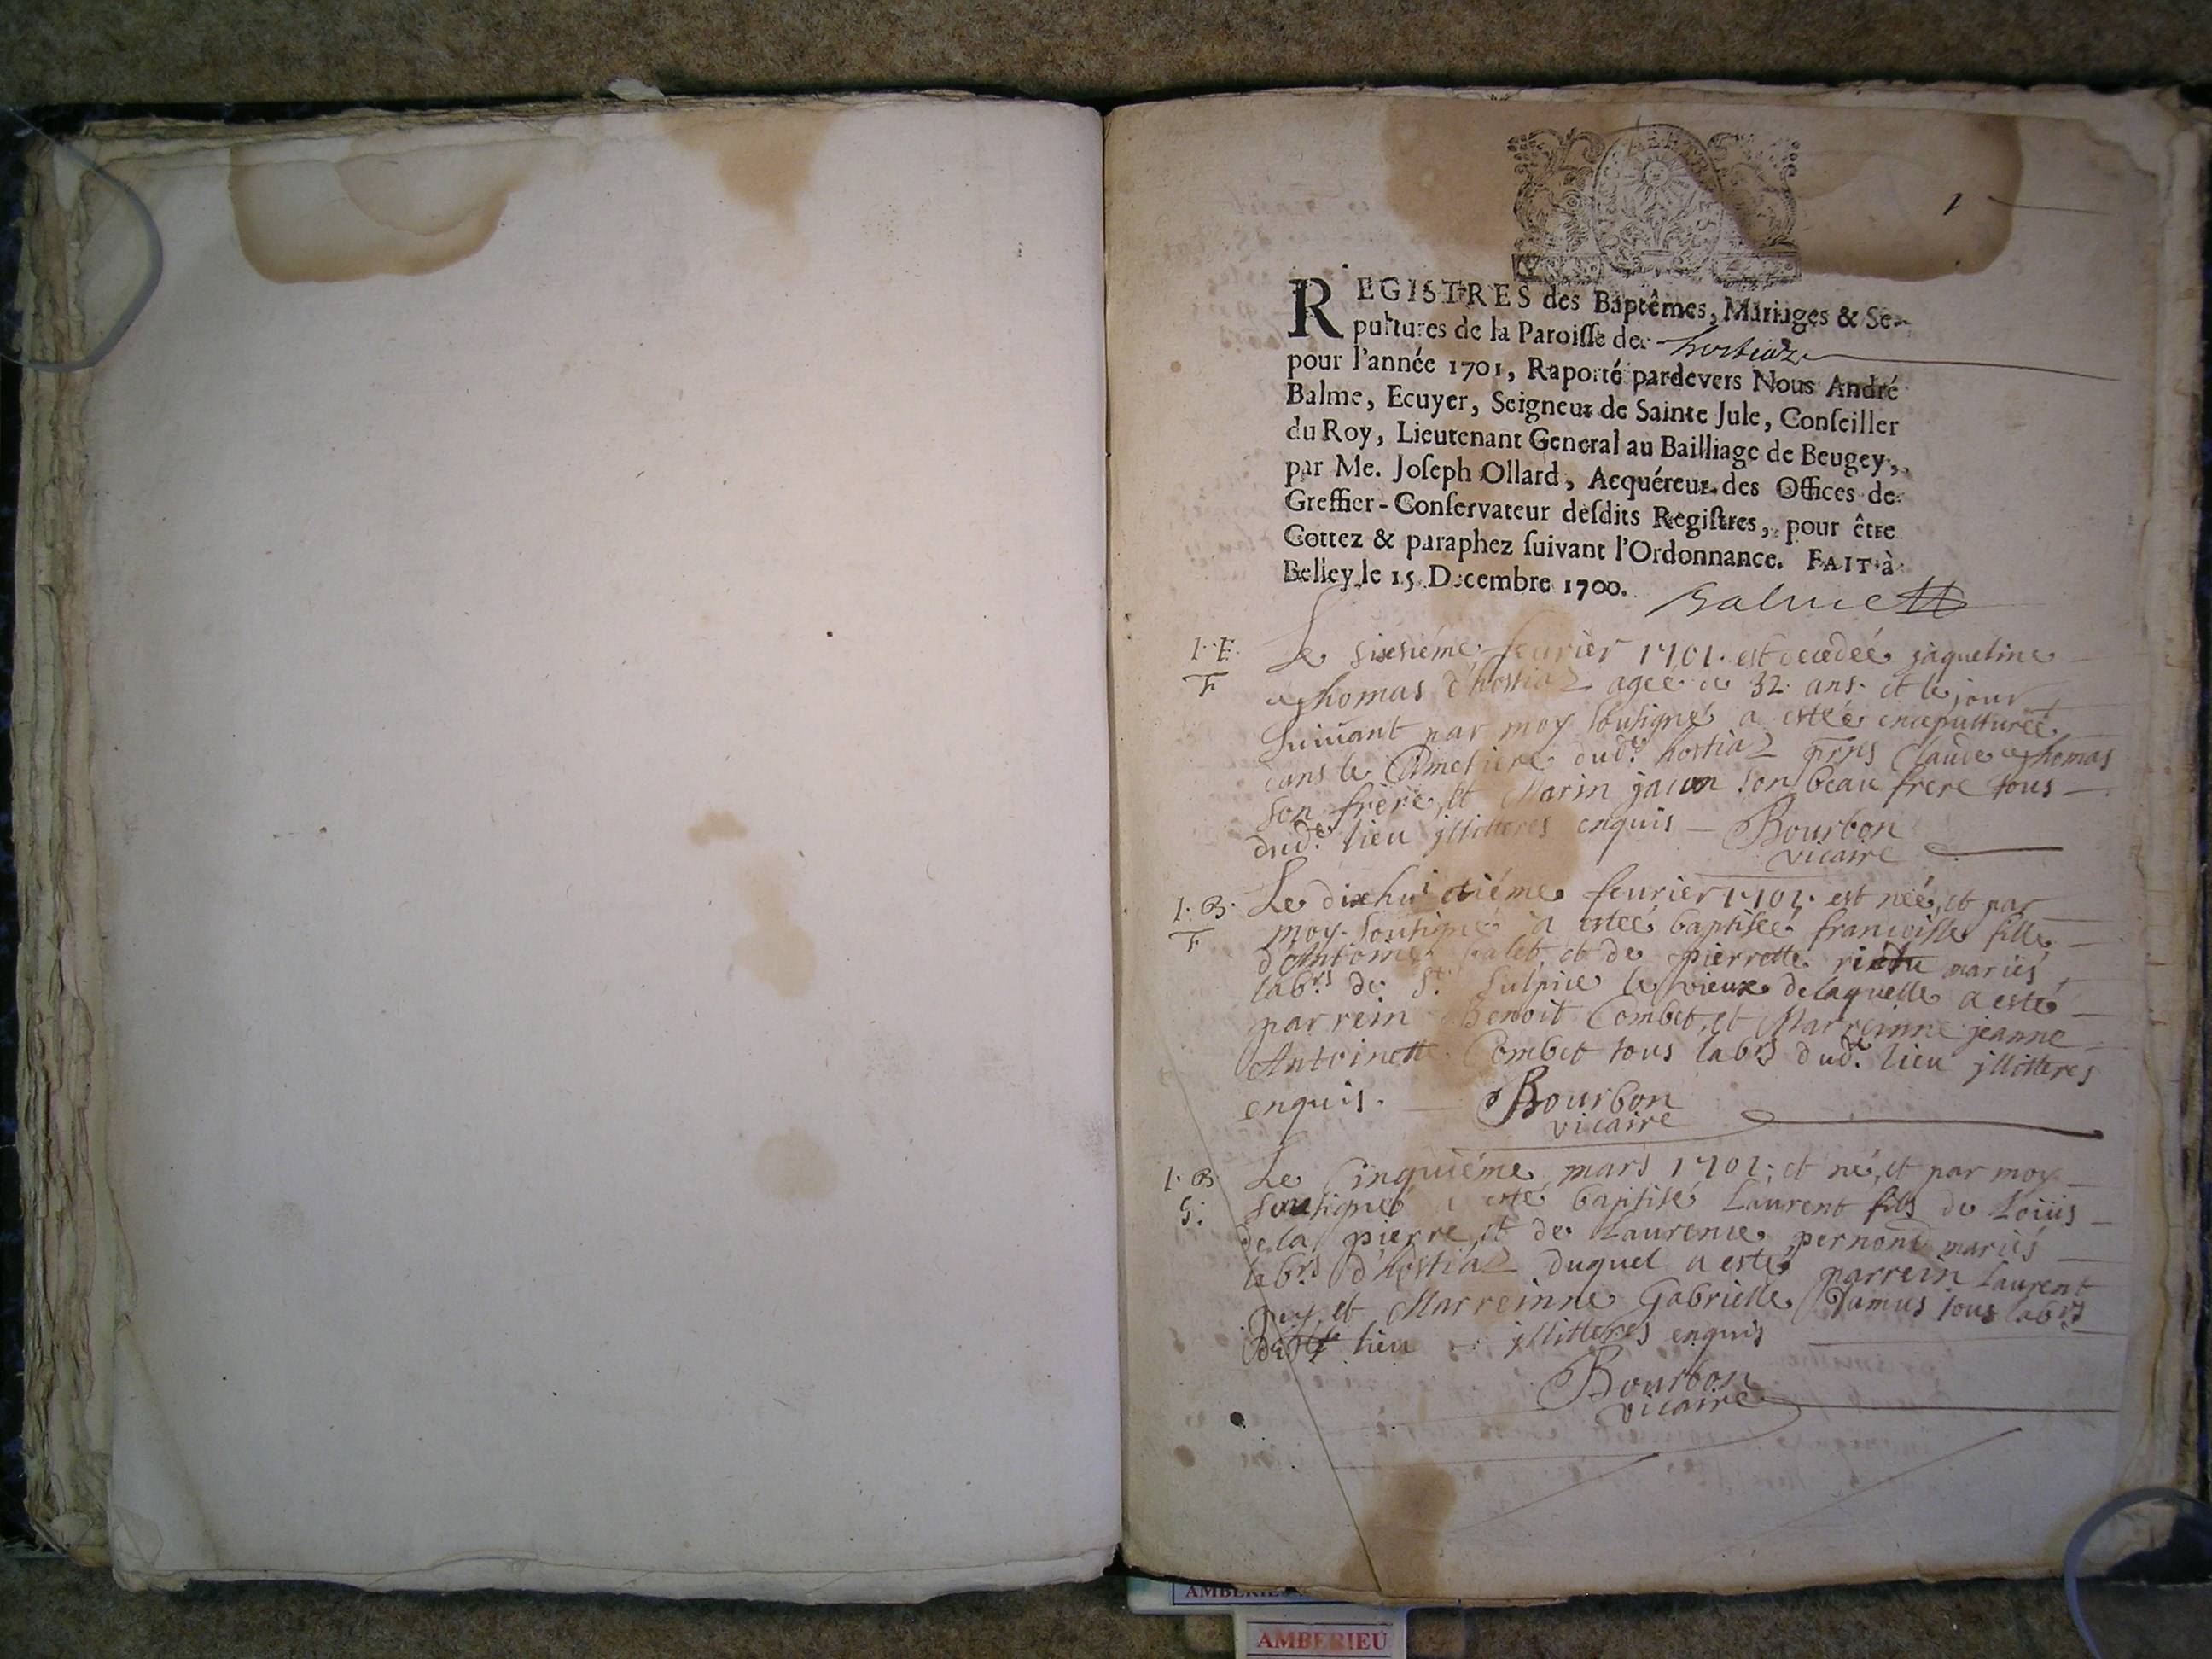 1
REGISTRES des Baptêmes, Mariages & Se-
pultures de la Paroisse de hostiaz
pour l'année 1701, Raporté pardevers Nous André
Balme, Ecuyer, Seigneur de Sainte Jule, Conseiller
du Roy, Lieutenant General au Bailliage de Beugey,
par Me. Joseph Ollard, Acquéreur des Offices de
Greffier-Conservateur desdits Registres, pour être
Cottez & paraphez suivant l'Ordonnance. FAIT à
Belley le 15 Decembre 1700.
Balme
1. E. Le sixsiéme feurier 1701. est decedeé jaqueline
F Thomas d'hostiaz ageé de 32 ans. et le jour
suiuant par moy sousigné a esteé ensepultureé
dans le Cimetiere dud. hostiaz prns Claude Thomas
son frere, et Marin son beau frere tous
dud. lieu jllitteres enquis Bourbon
vicaire
1. B. Le dixhuictiéme feurier 1701. est neé, et par
F moy sousigné a esteé baptiseé francoisse fille
d'Antoine et de pierrette mariés
labrs de St. Sulpice le vieux de laquelle a esté
parrein Benoit Combet, et Marreinne jeanne
Antoinette Combet tous labrs dud. lieu jllitteres
enquis. Bourbon
vicaire
1. B. Le Cinquiéme mars 1701. et né, et par moy
G. sousigné a esté baptisé Laurent fils de Loüis
de la pierre, et de Laurence pernond mariés
labrs d'hostiaz duquel a esté parrein Laurent
et Marreinne Gabrielle Dumus tous labrs
lieu jllitteres enquis
Bourbon
vicaire
AMBERIEU
AMBERIEU